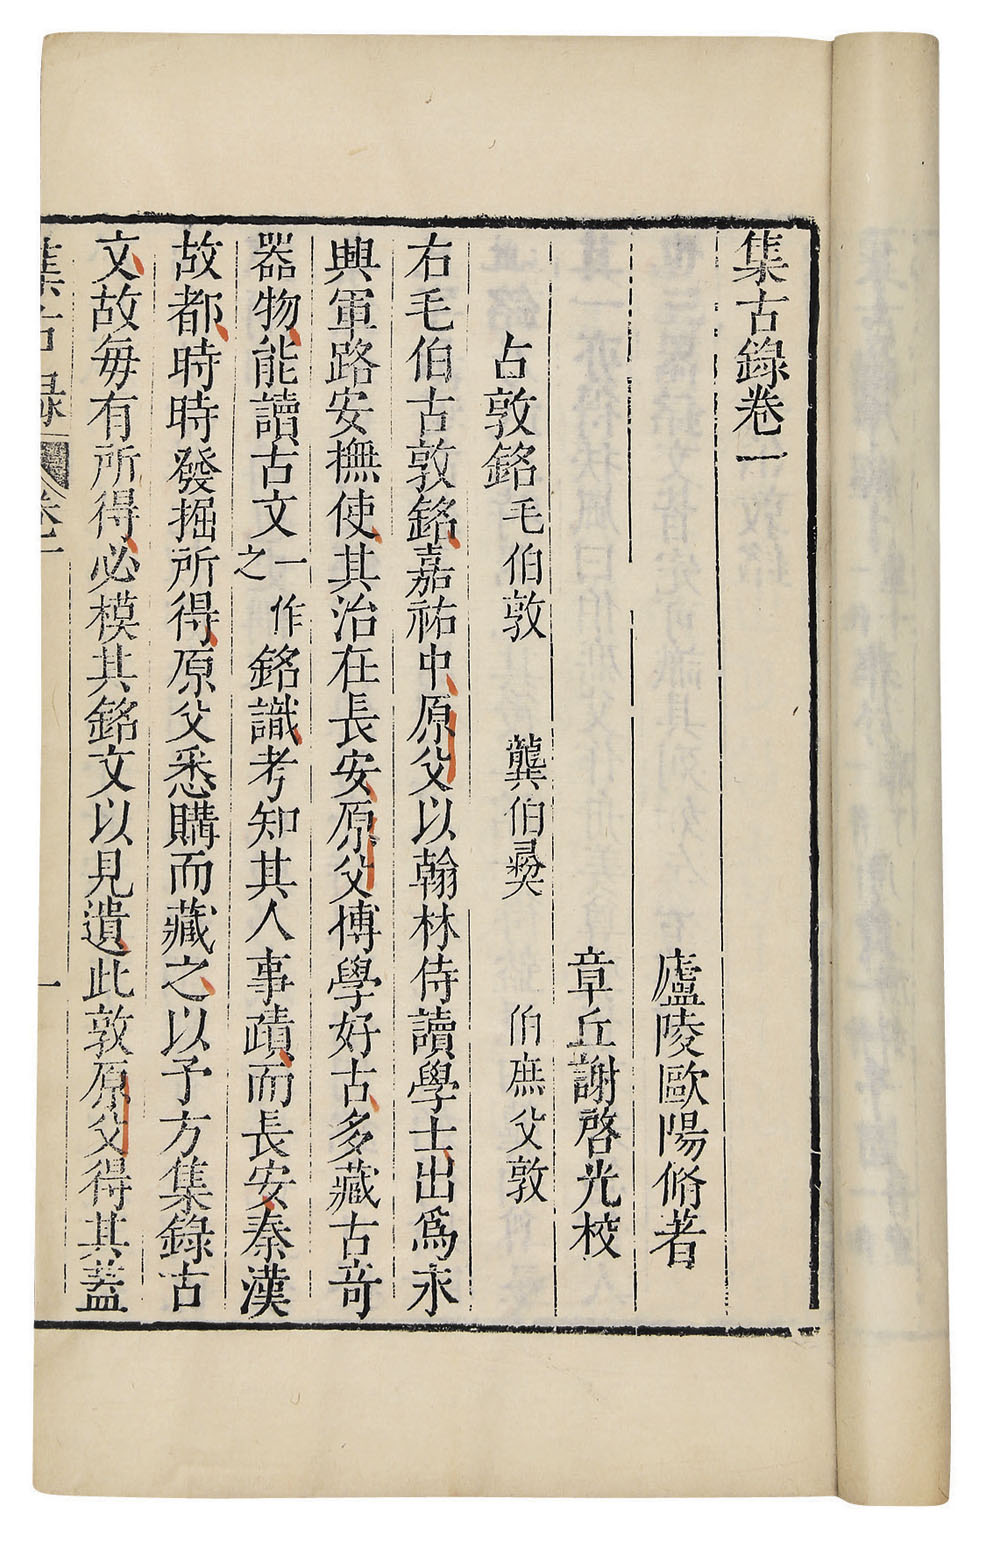 集古錄卷一
廬陵歐陽脩著
章丘謝啓光校
占敦銘毛伯敦 龔伯彛 伯庶父敦
右毛伯古敦銘嘉祐中原父以翰林侍讀學士出爲永
興軍路安撫使其治在長安原父博學好古多藏古奇
器物能讀古文一作之銘識考知其人事蹟而長安秦漢
故都時時發掘所得原父悉購而藏之以予方集錄古
文故每有所得必模其銘文以見遺此敦原父得其蓋
集古錄 卷一 一